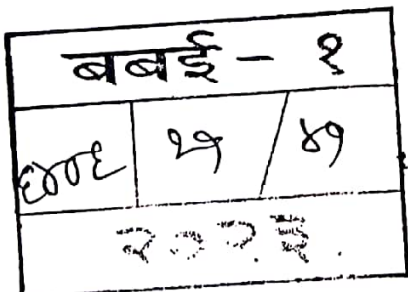 बबई - १
६४०६ २१ / ४१
२०२३